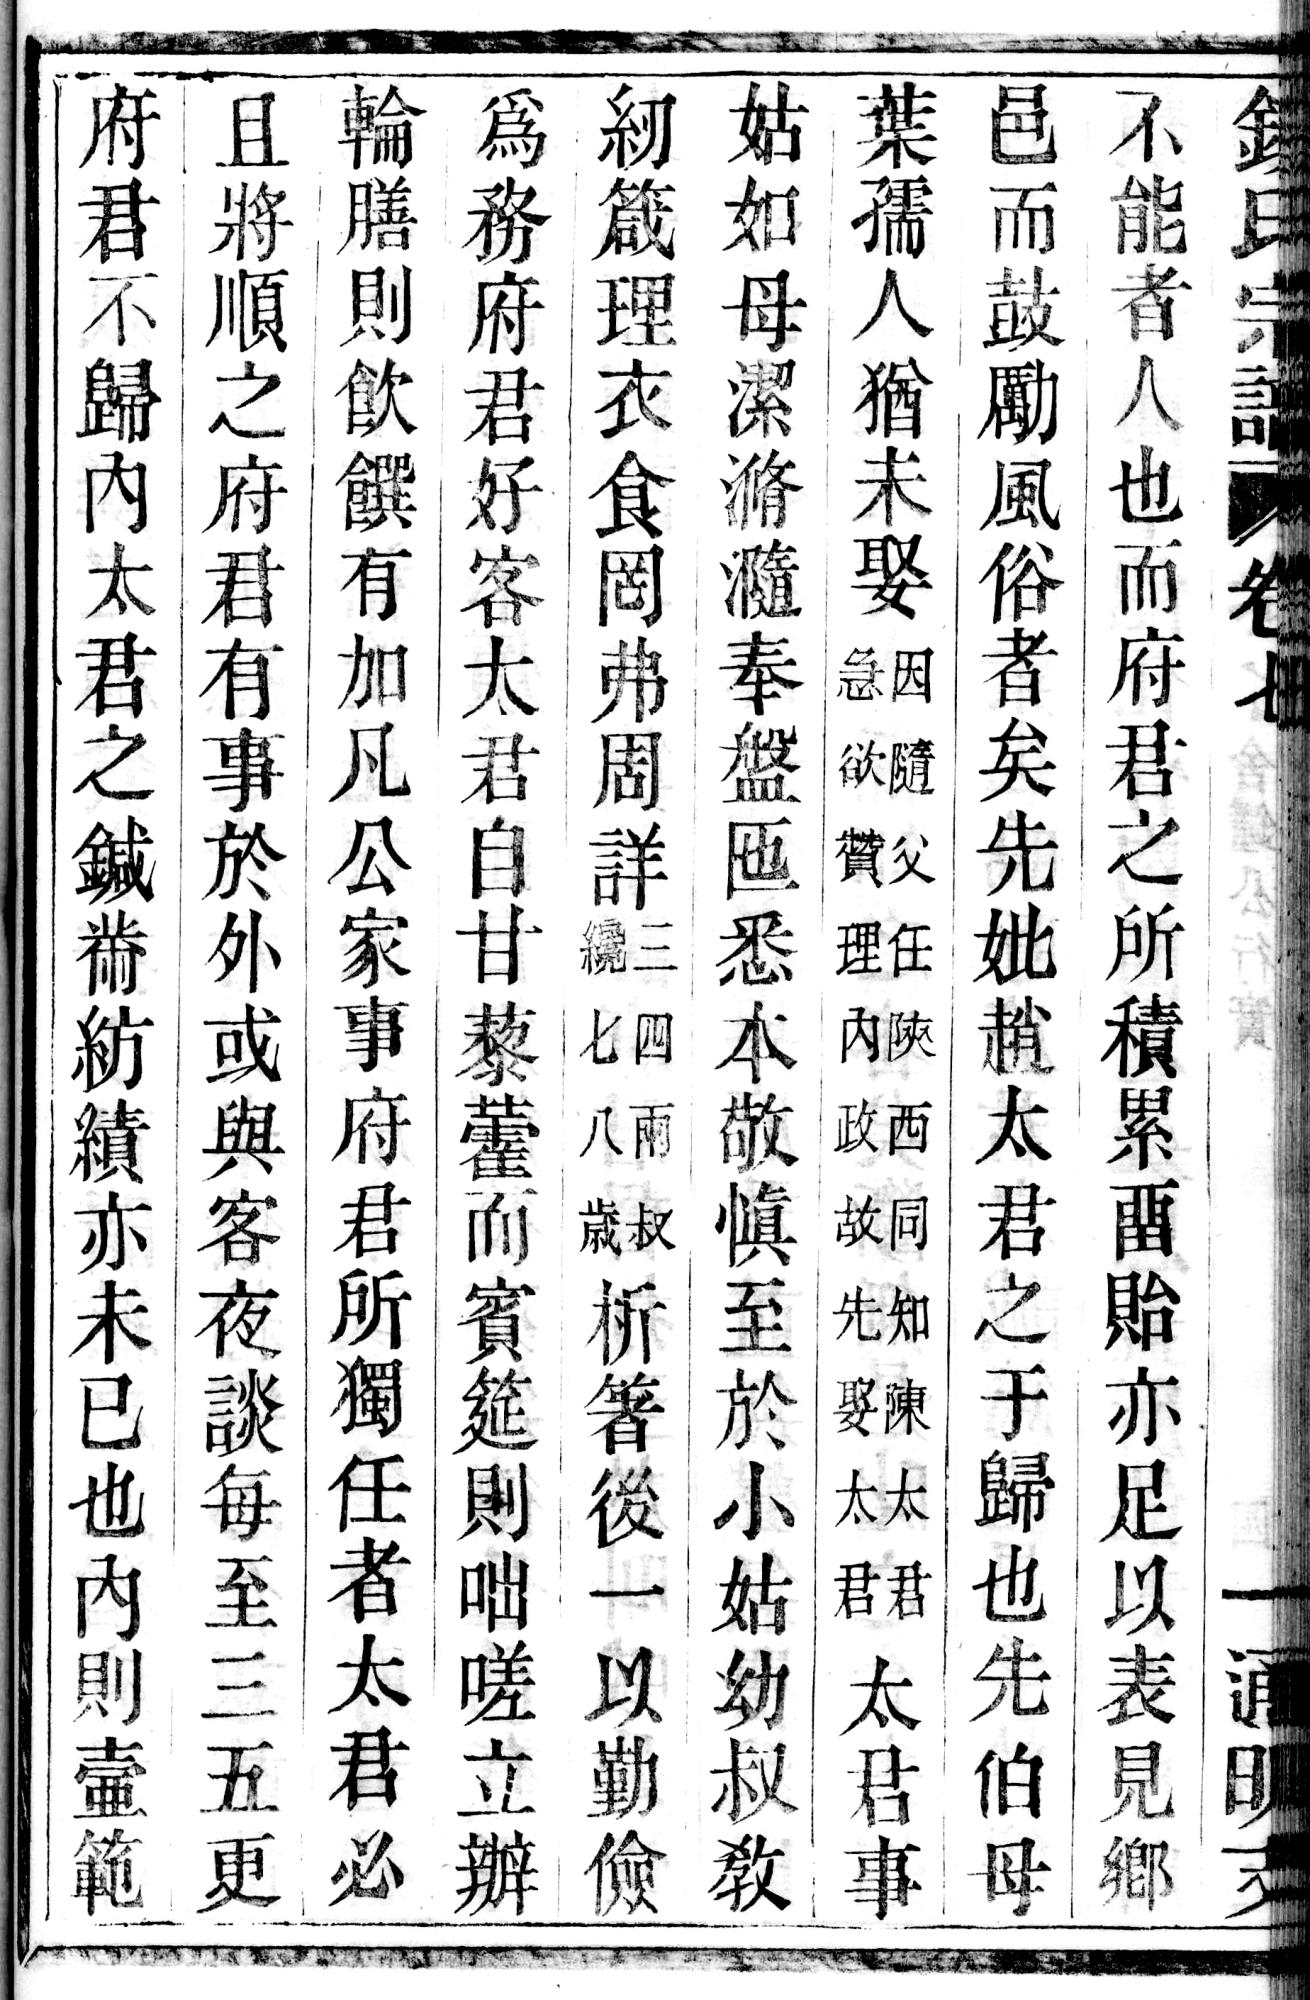 錢氏宗譜 卷七 一 通明
不能者人也而府君之所積累畱貽亦足以表見鄉
邑而鼓勵風俗者矣先妣趙太君之于歸也先伯母
葉孺人猶未娶因隨父任陝西同知陳太君急欲贊理內政故先娶太君太君事
姑如母潔滫瀡奉盤匜悉本敬慎至於小姑幼叔教
紉箴理衣食罔弗周詳三四兩叔纔七八歲析箸後一以勤儉
爲務府君好客太君自甘藜藿而賓筵則咄嗟立辦
輪膳則飲饌有加凡公家事府君所獨任者太君必
且將順之府君有事於外或與客夜談每至三五更
府君不歸內太君之鍼黹紡績亦未已也內則壼範